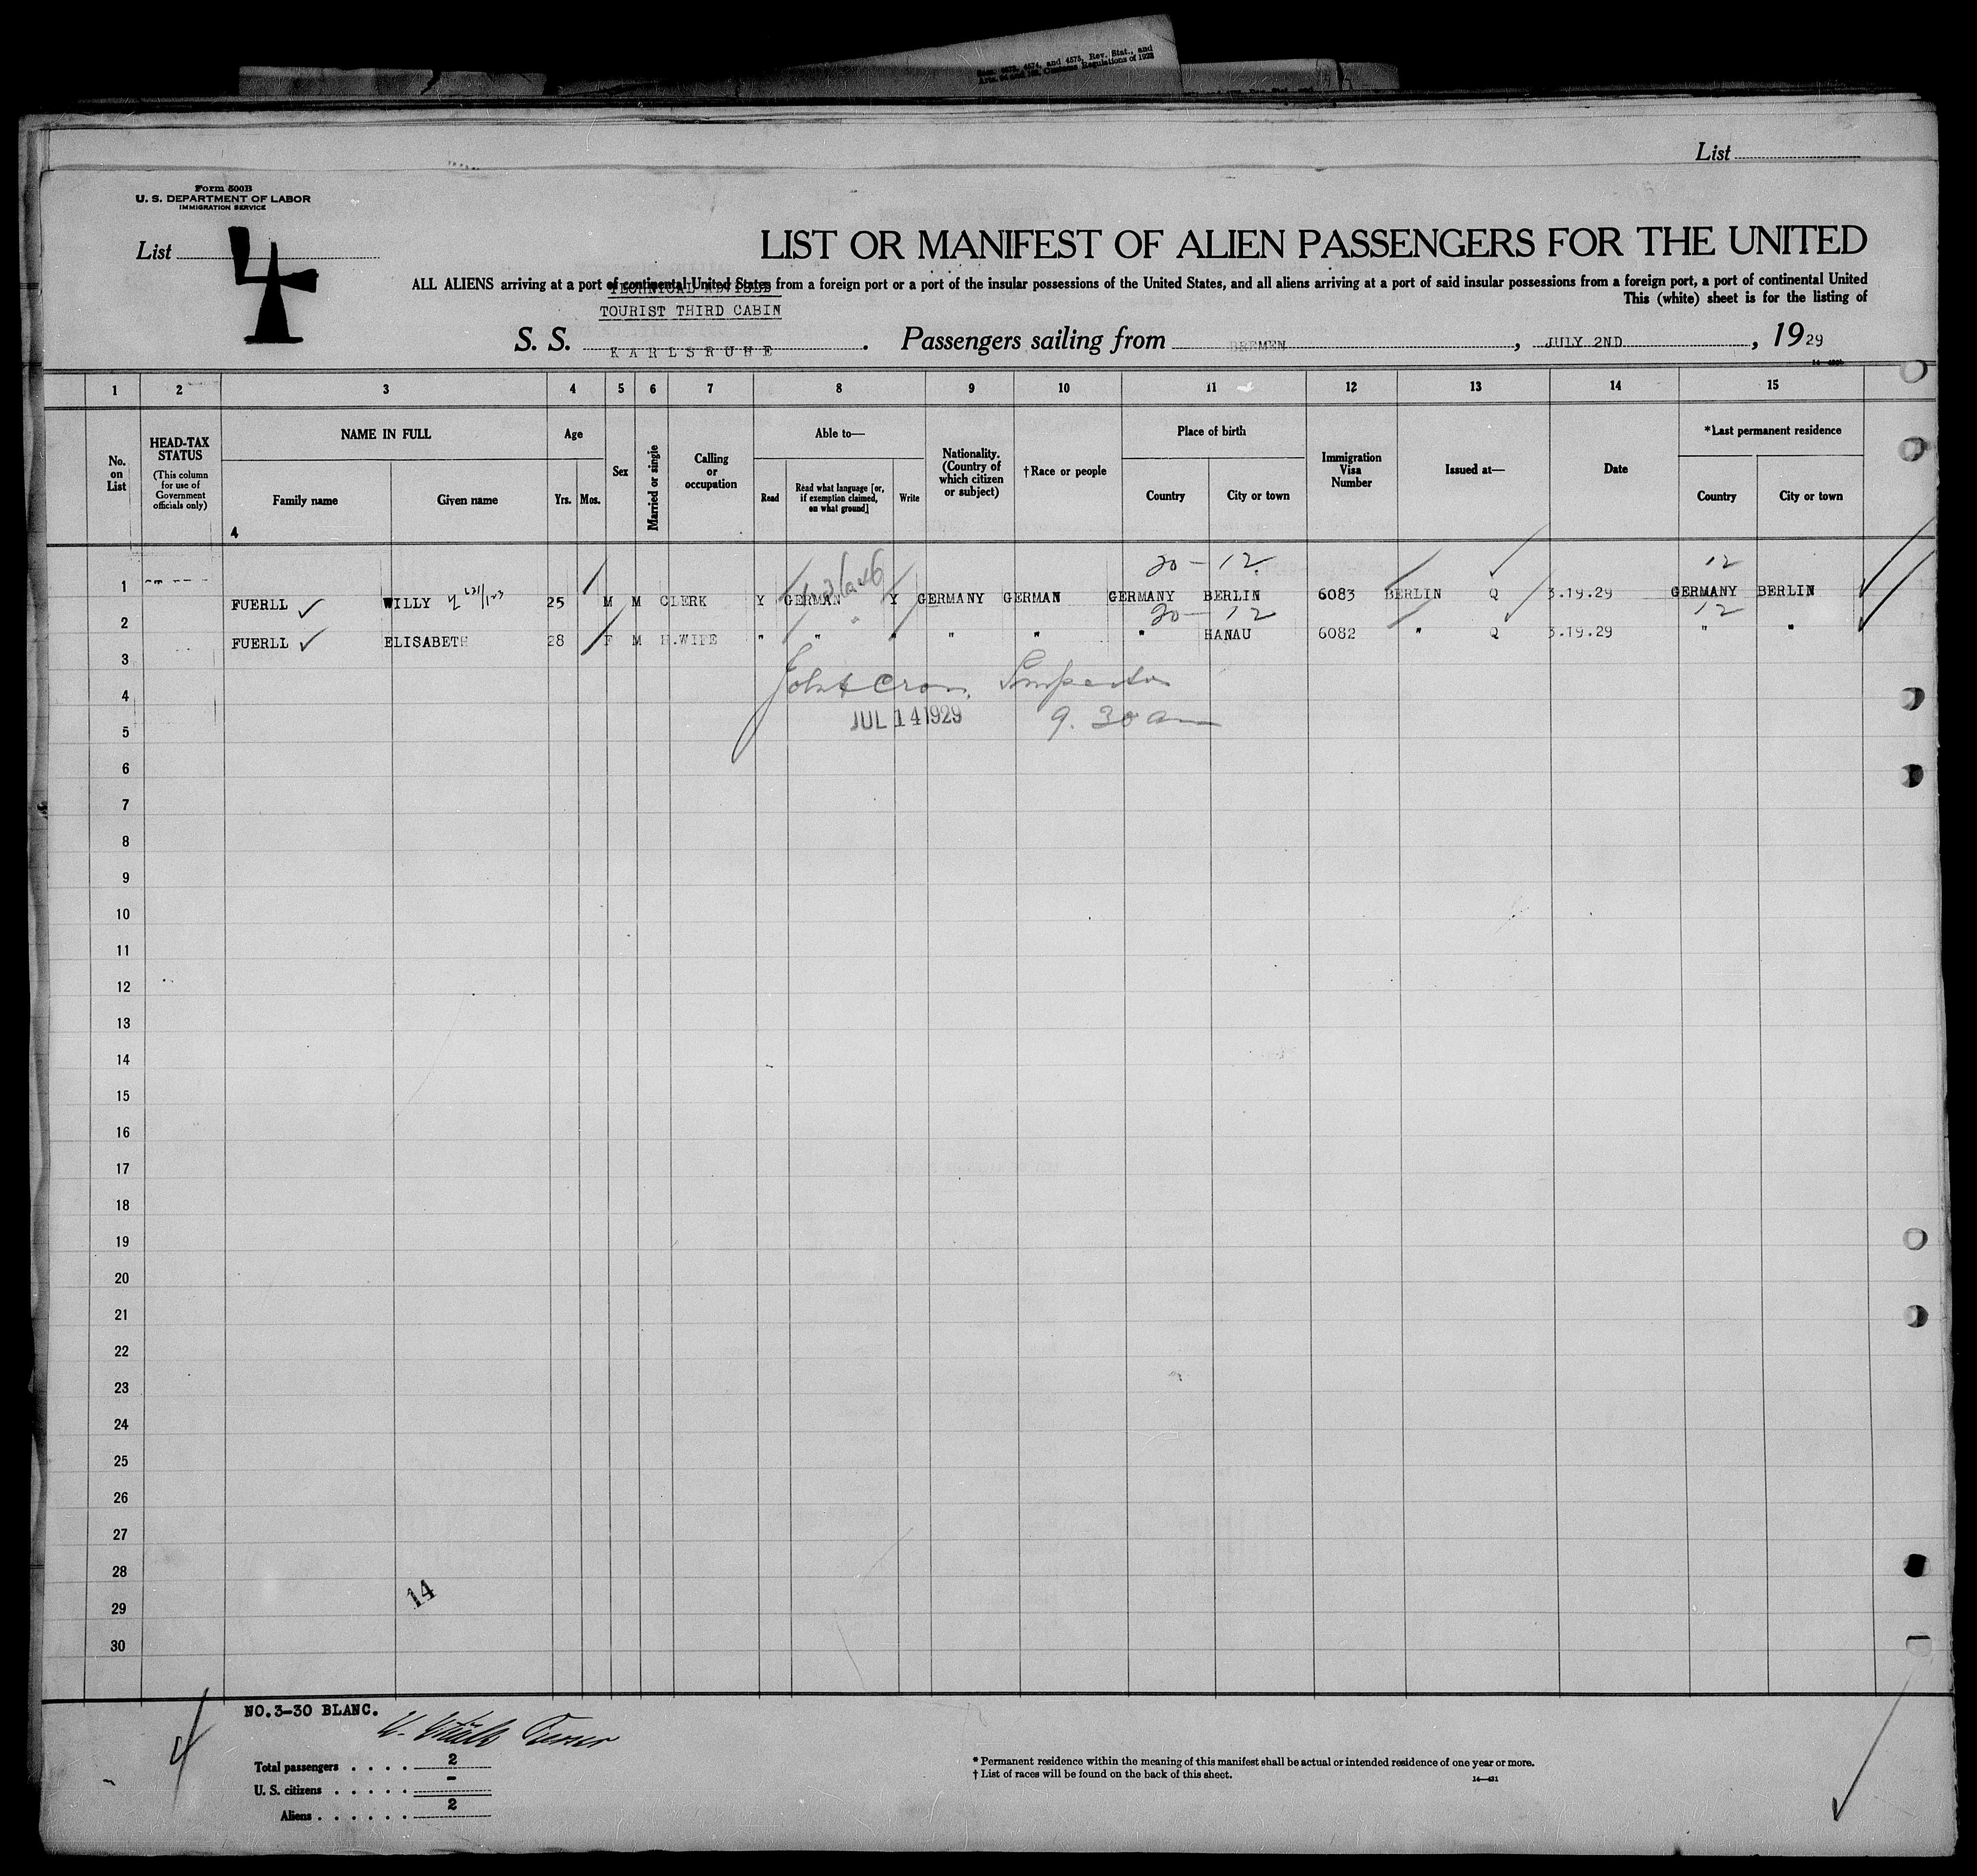 Secs. 4573, 4574, and 4575, Rev. Stat., and
Customs Regulations of 1923
List
Form 500B
U. S. DEPARTMENT OF LABOR
IMMIGRATION SERVICE
List 4
LIST OR MANIFEST OF ALIEN PASSENGERS FOR THE UNITED
ALL ALIENS arriving at a port of continental United States from a foreign port or a port of the insular possessions of the United States, and all aliens arriving at a port of said insular possessions from a foreign port, a port of continental United
This (white) sheet is for the listing of
TOURIST THIRD CABIN
S. S. KARLSRUHE. Passengers sailing from BREMEN, JULY 2ND, 1929
1 2 3 4 5 6 7 8 9 10 11 12 13 14 15
No. on List
HEAD-TAX STATUS
(This column for use of Government officials only)
NAME IN FULL
Family name
Given name
4
Age
Yrs. Mos.
Sex
Married or single
Calling or occupation
Able to—
Read
Read what language [or, if exemption claimed, on what ground]
Write
Nationality. (Country of which citizen or subject)
†Race or people
Place of birth
Country
City or town
Immigration Visa Number
Issued at—
Date
*Last permanent residence
Country
City or town
20 - 12 12
1 FUERLL WILLY 25 M M CLERK Y GERMAN Y GERMANY GERMAN GERMANY BERLIN 6083 BERLIN Q 3.19.29 GERMANY BERLIN
20 - 12 12
2 FUERLL ELISABETH 28 F M H.WIFE " " " " " " HANAU 6082 " Q 3.19.29 " "
3
4
JUL 14 1929 9. 30 am
5
6
7
8
9
10
11
12
13
14
15
16
17
18
19
20
21
22
23
24
25
26
27
28
14
29
30
NO.3-30 BLANC.
Total passengers . . . . 2
U. S. citizens . . . . . -
Aliens . . . . . . 2
* Permanent residence within the meaning of this manifest shall be actual or intended residence of one year or more.
† List of races will be found on the back of this sheet.
14—431